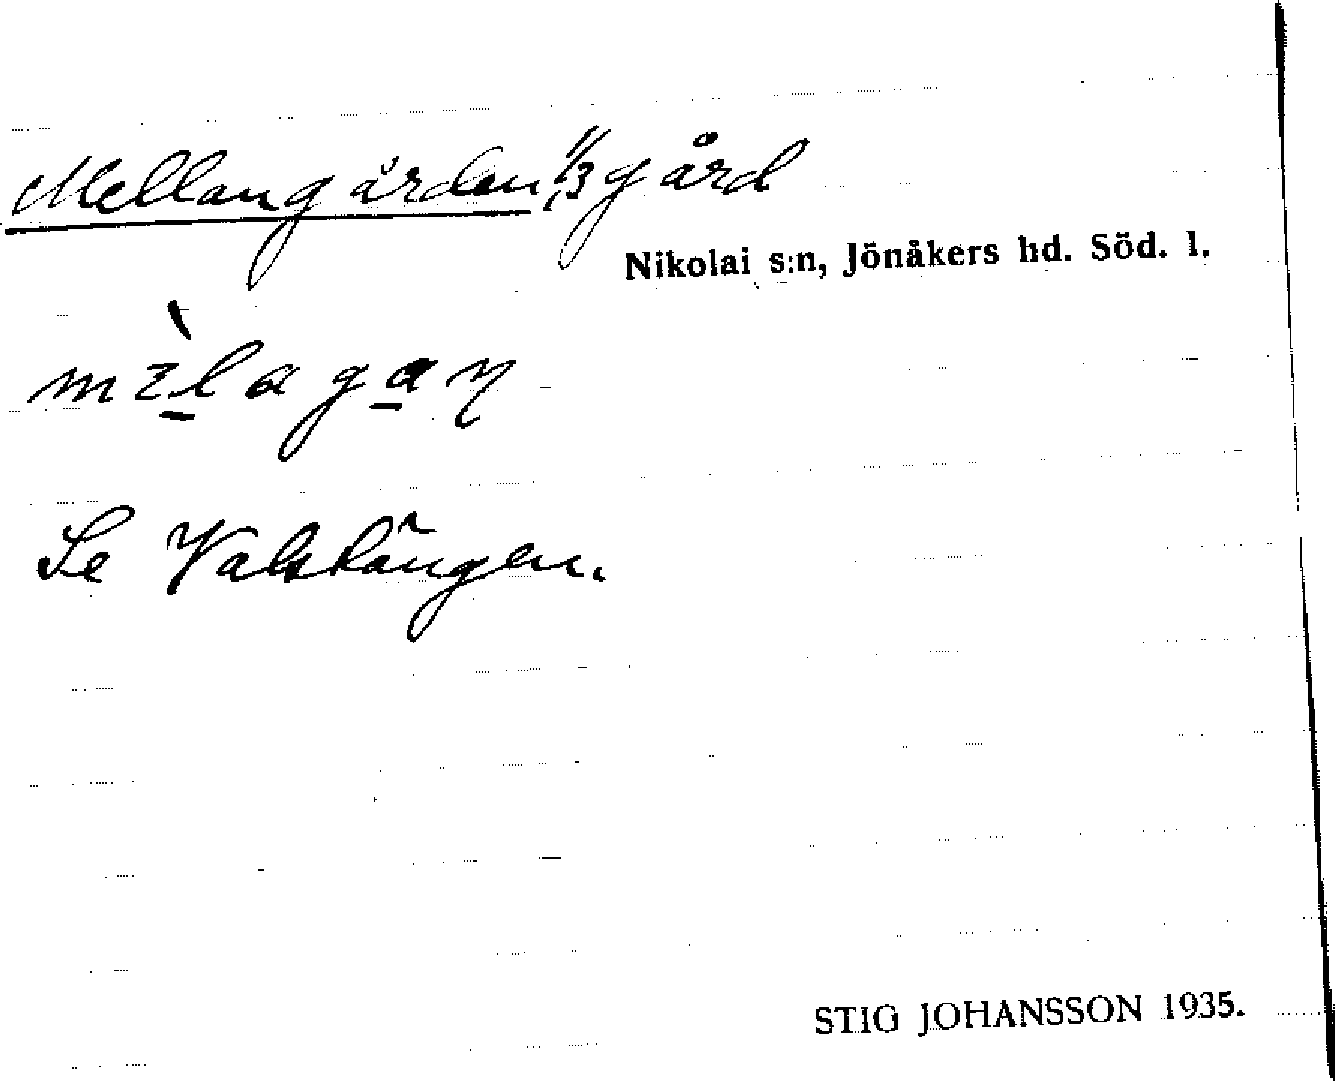 Mellangården, 1/3 gård
Nikolai s:n, Jönåkers hd. Söd. l.
Se Valstängen.
STIG JOHANSSON 1935.